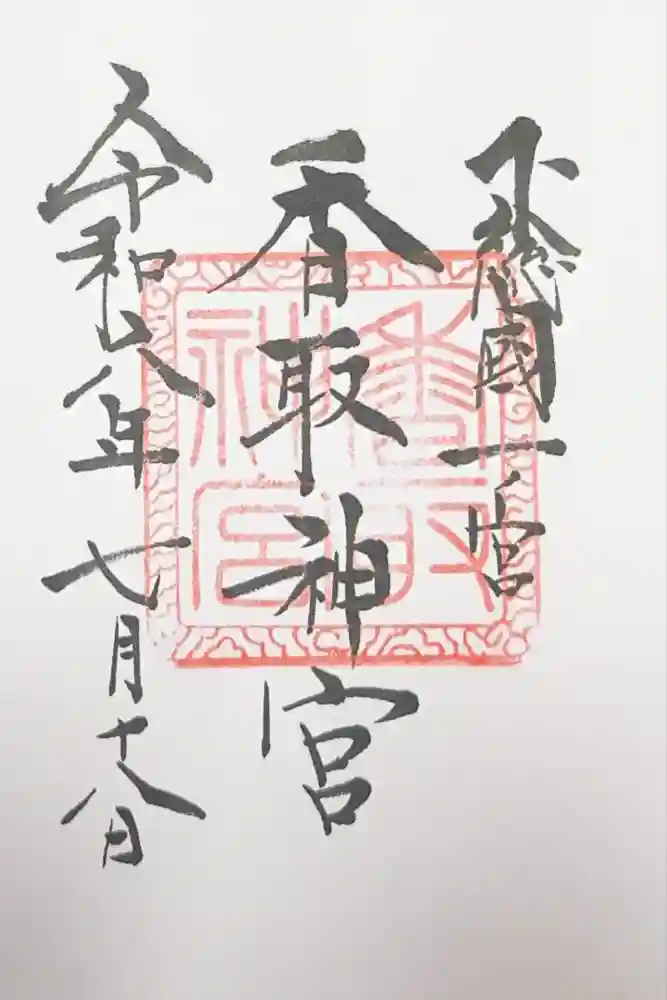 下總國一ノ宮
香取神宮
令和八年七月十八日
香取神宮